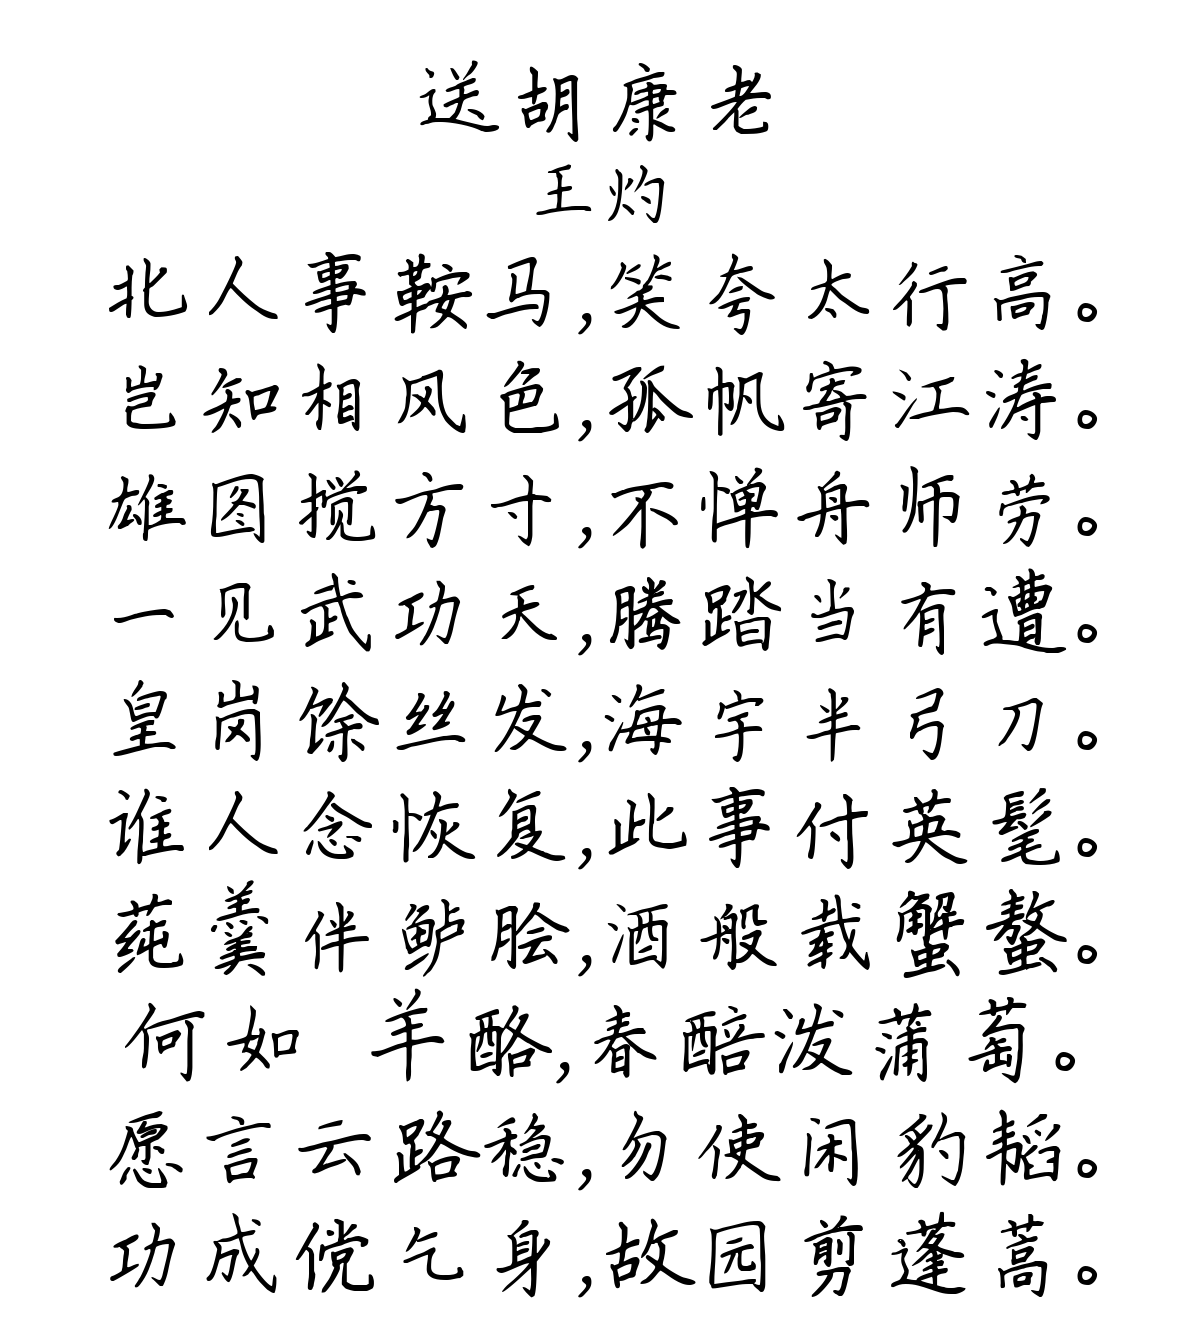 送胡康老
王灼
北人事鞍马,笑夸太行高。
岂知相风色,孤帆寄江涛。
雄图搅方寸,不惮舟师劳。
一见武功天,腾踏当有遭。
皇岗馀丝发,海宇半弓刀。
谁人念恢复,此事付英髦。
莼羹伴鲈脍,酒般载蟹螯。
何如 羊酪,春醅泼蒲萄。
愿言云路稳,勿使闲豹韬。
功成傥乞身,故园剪蓬蒿。